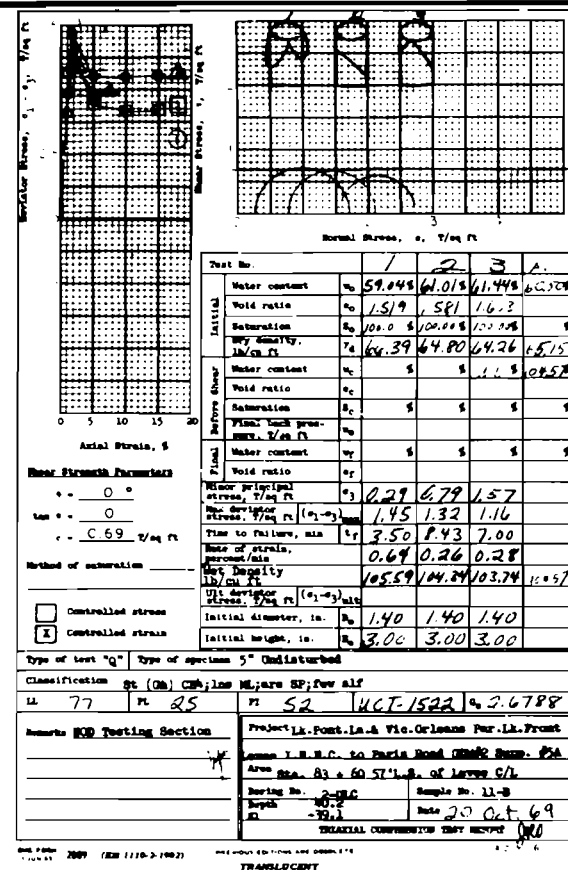 Deviator Stress, σ1 - σ3, T/sq ft
Shear Stress, s, T/sq ft
Normal Stress, σ, T/sq ft
0 5 10 15 20
Axial Strain, %
Shear Strength Parameters
φ = 0 °
tan φ = 0
c = 0.69 T/sq ft
Method of saturation
Controlled stress
X Controlled strain
Test No. 1 2 3 A.
Initial
Water content w₀ 59.04% 61.01% 61.44%
Void ratio e₀ 1.519 .581
Saturation S₀ 100.0 % 100.00% %
Dry density, lb/cu ft γd 66.39 64.80 64.26 65.15
Before Shear
Water content wc % %
Void ratio ec
Saturation Sc % % % %
Final back pressure, T/sq ft u₀
Final
Water content wf % % % %
Void ratio ef
Minor principal stress, T/sq ft σ3 0.29 0.79 1.57
Max deviator stress, T/sq ft (σ1-σ3)max 1.45 1.32 1.16
Time to failure, min tf 3.50 8.43 7.00
Rate of strain, percent/min 0.64 0.26 0.28
Wet Density lb/cu ft 105.59 104.34 103.74
Ult deviator stress, T/sq ft (σ1-σ3)ult
Initial diameter, in. D₀ 1.40 1.40 1.40
Initial height, in. H₀ 3.00 3.00 3.00
Type of test "Q" Type of specimen 5" Undisturbed
Classification St (GA) CH4;lns ML;ars SP;few slf
LL 77 PL 25 PI 52 UCT-1522 Gs 2.6788
Remarks NOD Testing Section
Project Lk.Pont.La.& Vic.Orleans Par.Lk.Front
Levee I.H.N.C. to Paris Road
Area Sta. 83 + 60 57'L.S. of Levee C/L
Boring No. 2-OLC Sample No. 11-B
Depth 40.2
El -39.1
Date 20 Oct. 69
TRIAXIAL COMPRESSION TEST REPORT
ENG FORM 2089 (EM 1110-2-1902)
PREVIOUS EDITIONS ARE OBSOLETE
TRANSLUCENT